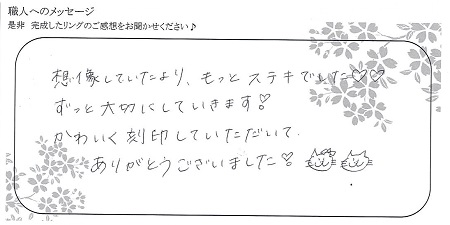 職人へのメッセージ
是非 完成したリングのご感想をお聞かせください♪
想像していたより、もっとステキでした♡♡
ずっと大切にしていきます♡
かわいく刻印していただいて
ありがとうございました♡